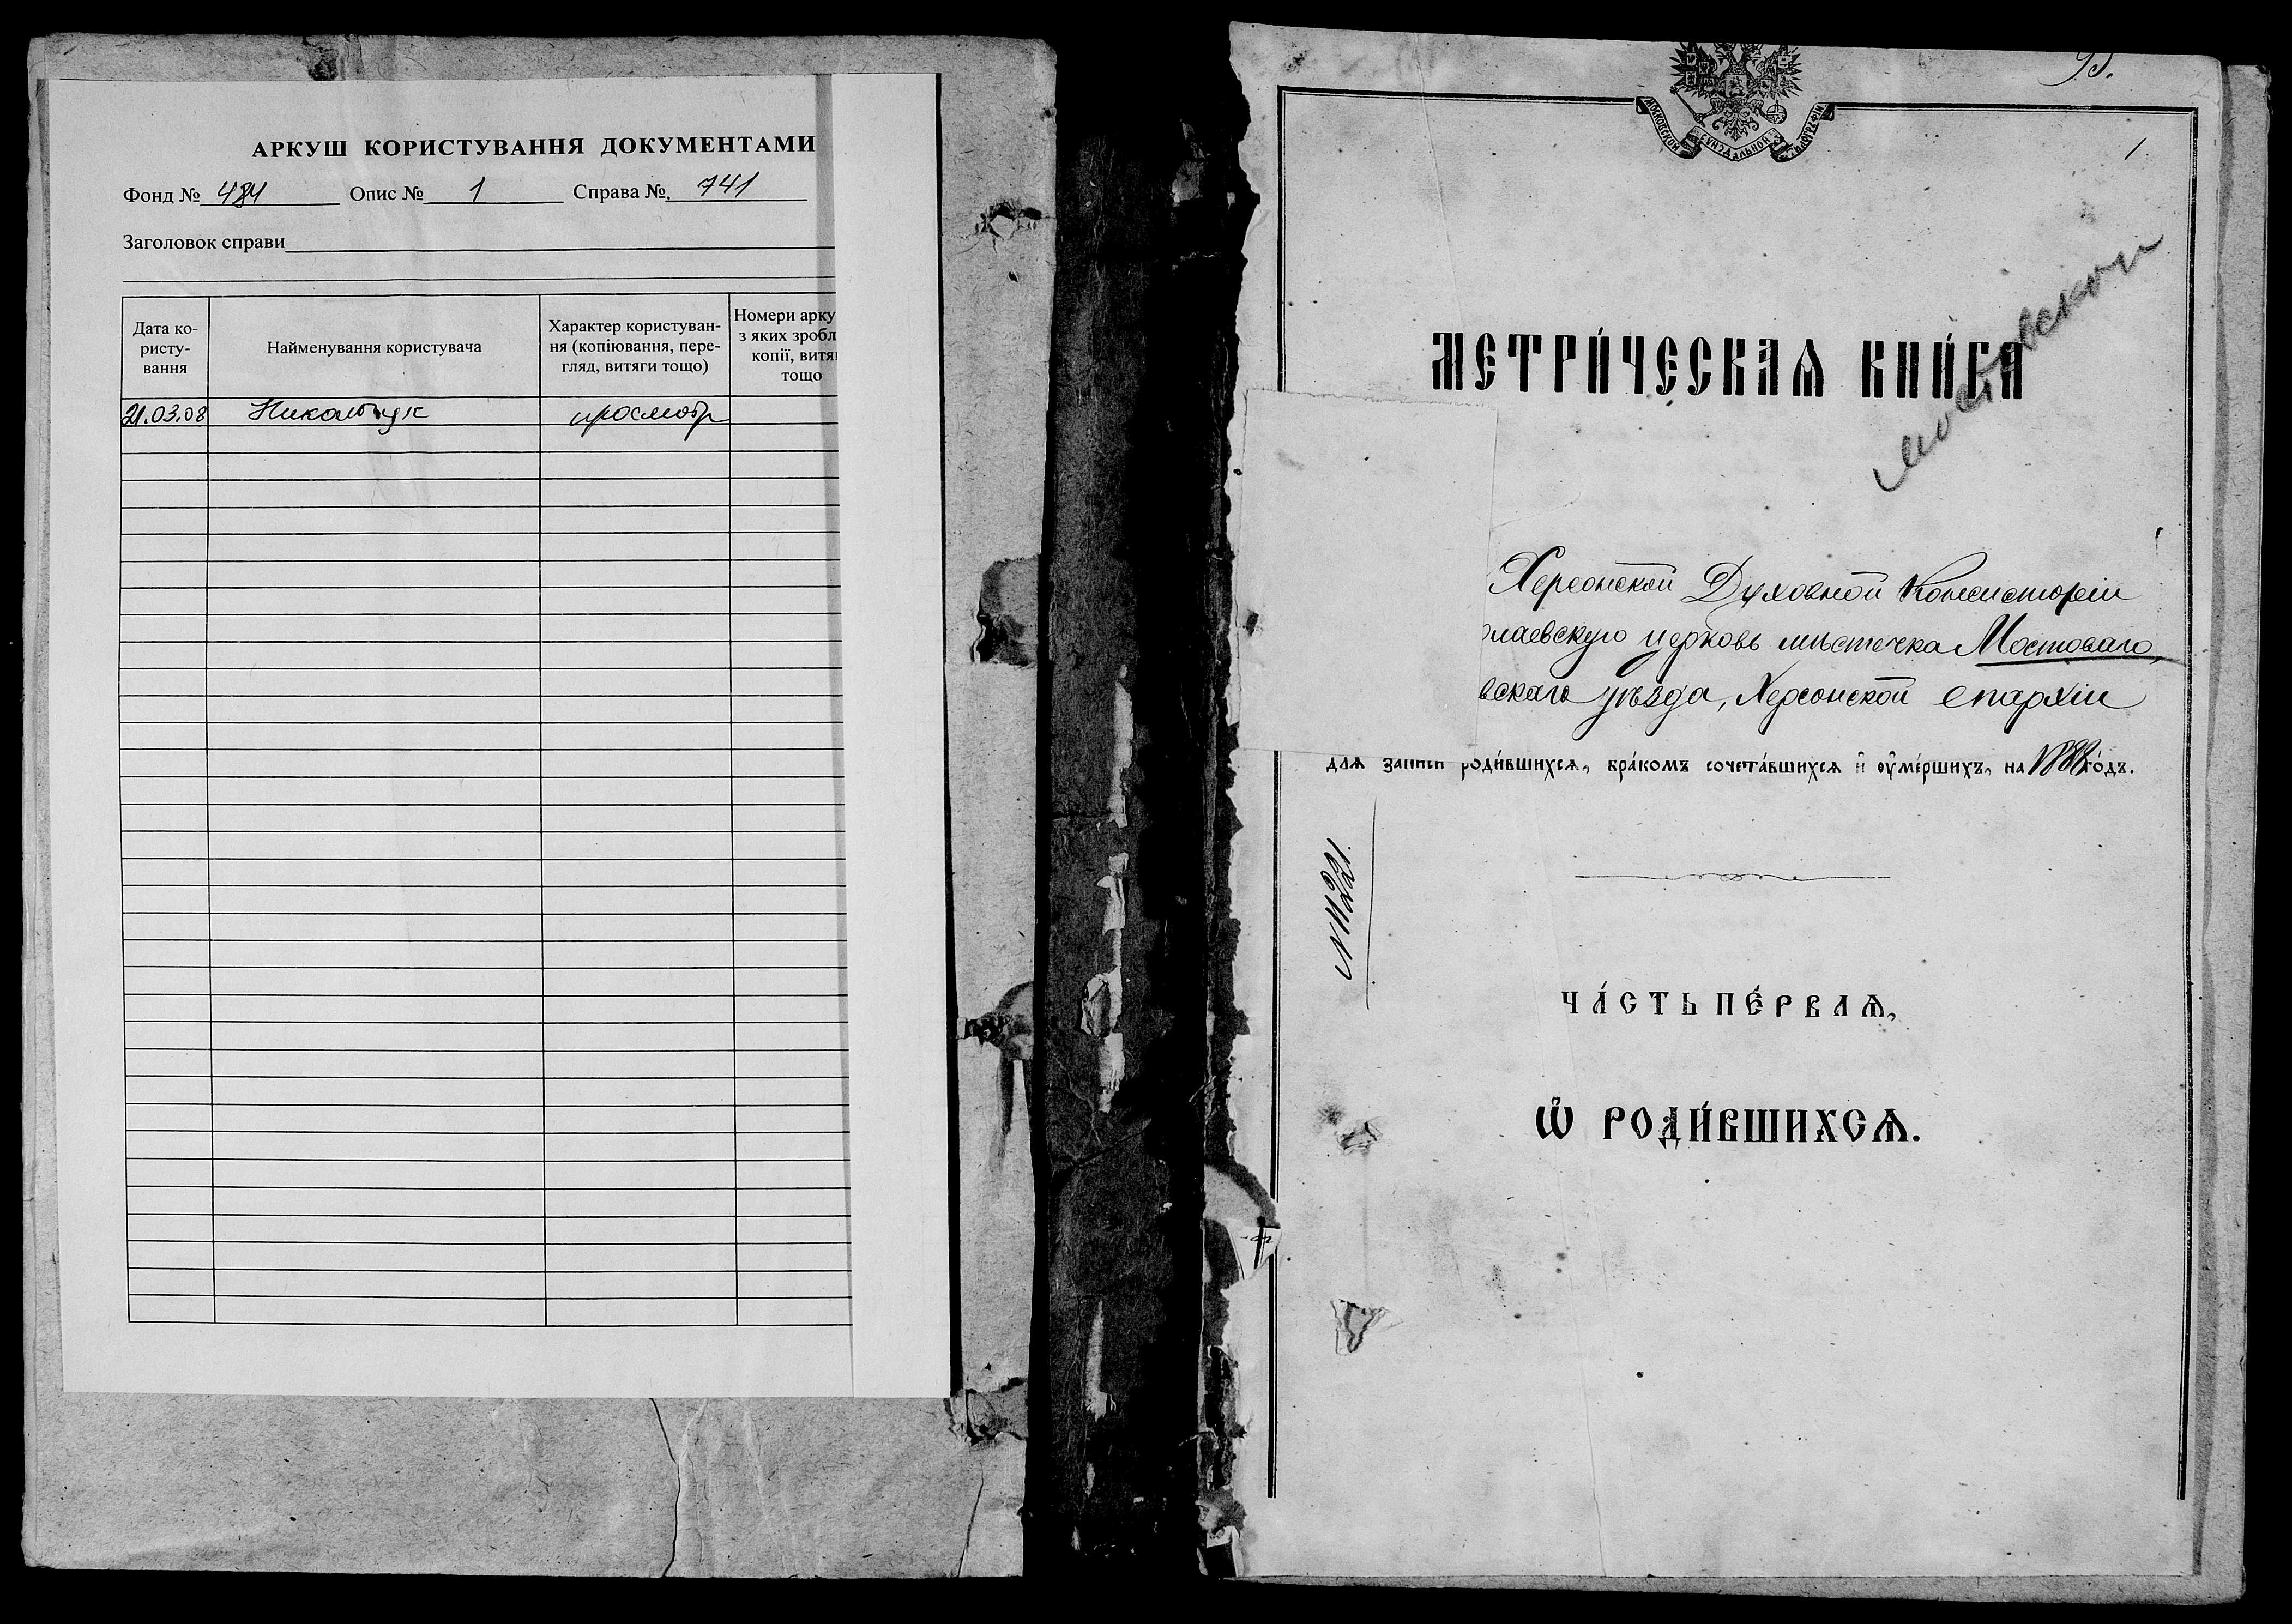 АРКУШ КОРИСТУВАННЯ ДОКУМЕНТАМИ
Фонд № 484 Опис № 1 Справа №. 741
Заголовок справи
Дата ко-
ристу-
вання
Найменування користувача
Характер користуван-
ня (копіювання, пере-
гляд, витяги тощо)
Номери арку
з яких зробл
копії, витя
тощо
21.03.08 просмотр
1.
МОСКОВСКОЙ СѴНОДАЛЬНОЙ ТИПОГРАФІИ
МЕТРИ́ЧЕСКАѦ КНИ́ГА
Херсонской Духовной Консисторіи
олаевскую церковь мѣстечка Мостоваго,
вскаго уѣзда, Херсонской епархіи
для записи роди́вшихсѧ, бра́комъ сочета́вшихсѧ и҆ ѹ҆ме́ршихъ, на 1888 го́дъ.
№ 11221.
ЧА́СТЬ ПЕ́РВАѦ,
Ѡ҆ РОДИ́ВШИХСѦ.